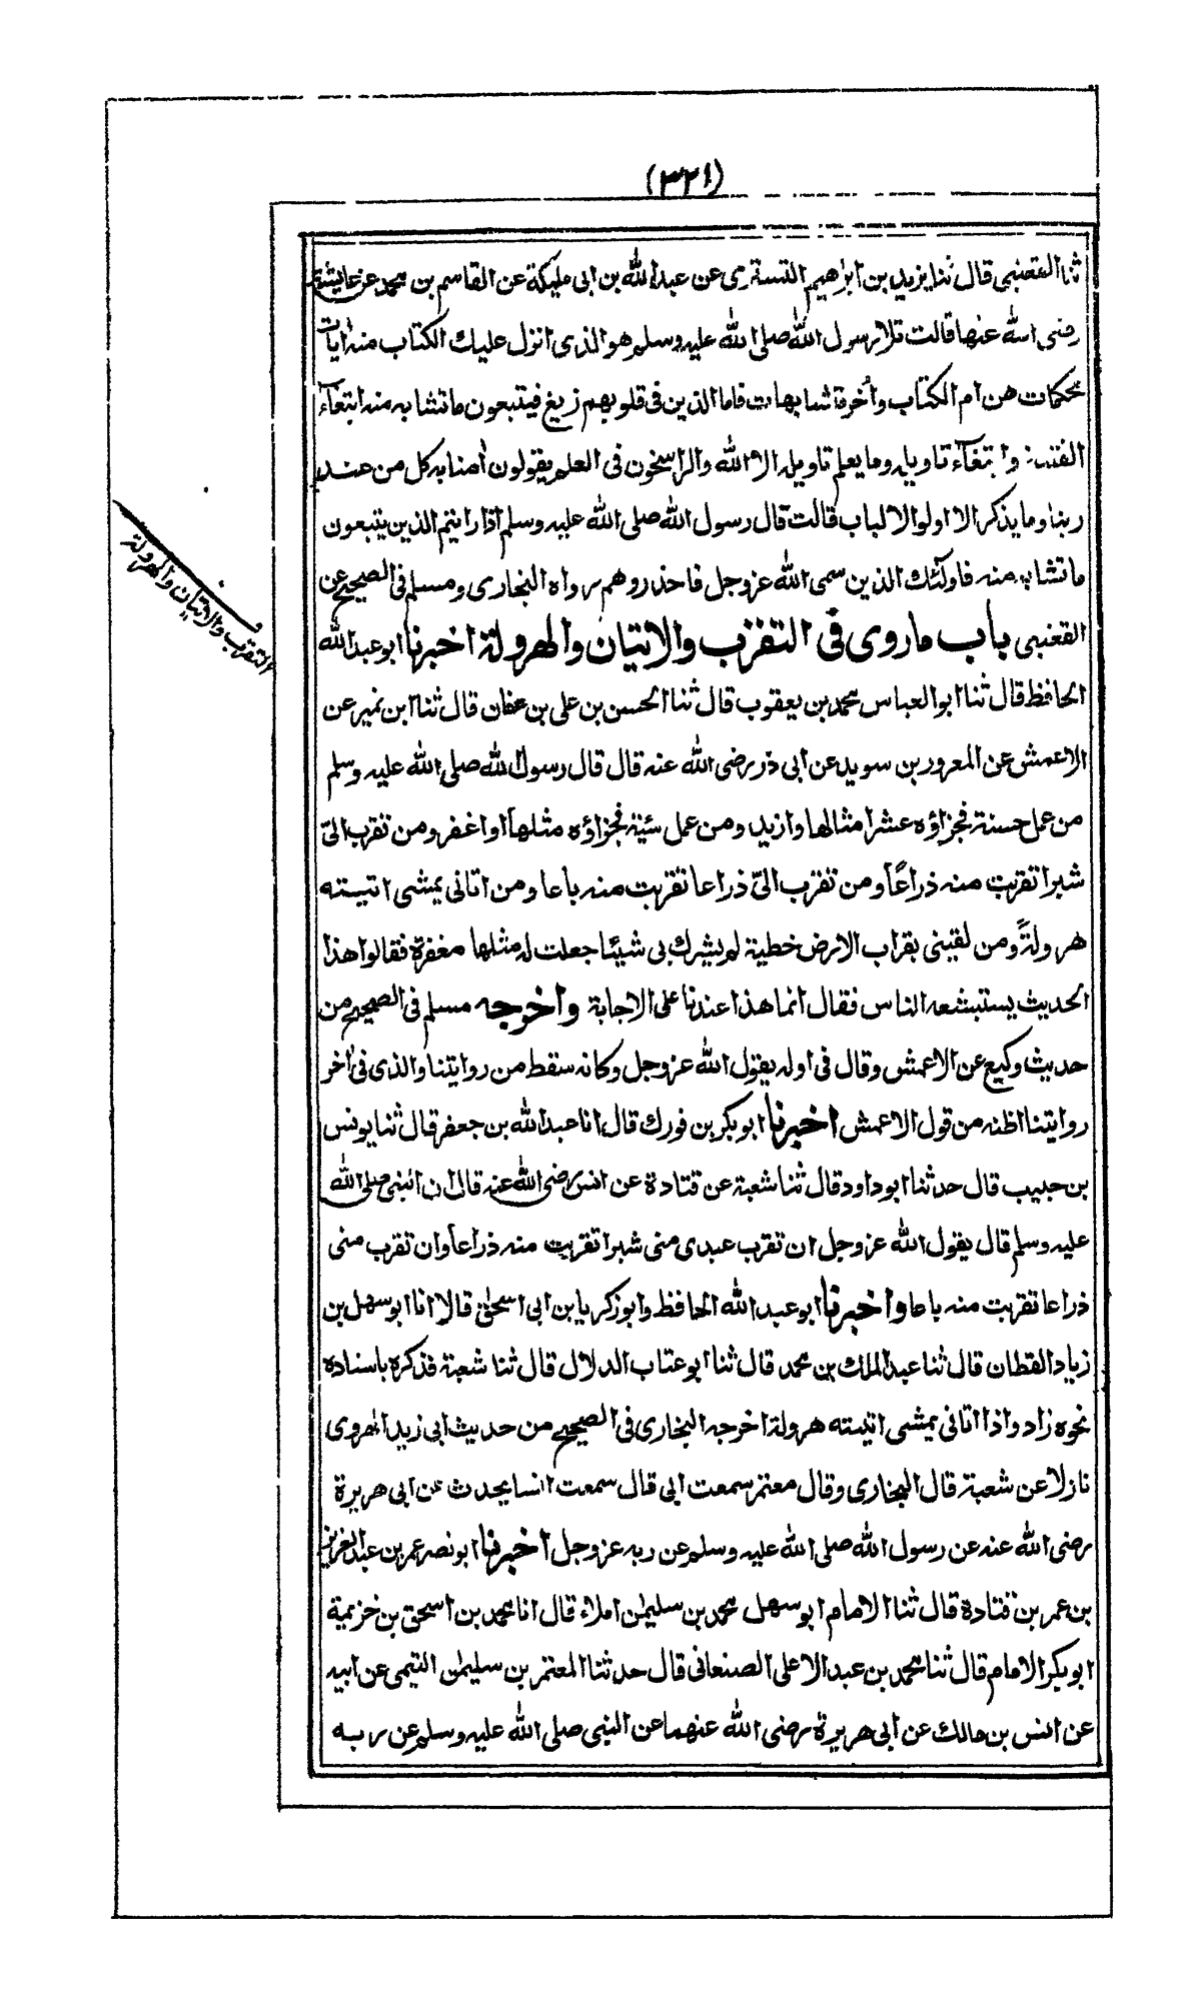 (٣٢١)
ثنا القعنبى قال ثنا يزيد بن ابراهيم التسترى عن عبد الله بن ابى مليكة عن القاسم بن محمد عن عايشة
رضى الله عنها قالت تلا رسول الله صلى الله عليه وسلم هو الذى انزل عليك الكتاب منه اٰيات
محكمات هن ام الكتاب واُخر متشابهات فاما الذين فى قلوبهم زيغ فيتبعون ما تشابه منه ابتغآء
الفتنة وابتغآء تاويله وما يعلم تاويله الا الله والراسخون فى العلم يقولون اٰمنا به كل من عند
ربنا وما يذكر الا اولوا الالباب قالت قال رسول الله صلى الله عليه وسلم اذا رايتم الذين يتبعون
ما تشابه منه فاولٰئك الذين سمى الله عز وجل فاحذروهم رواه البخارى ومسلم فى الصحيح عن
القعنبى باب ماروى فى التقرب والاتيان والهرولة اخبرنا ابو عبد الله
الحافظ قال ثنا ابو العباس محمد بن يعقوب قال ثنا الحسن بن على بن عفان قال ثنا ابن نمير عن
الاعمش عن المعرور بن سويد عن ابى ذر رضى الله عنه قال قال رسول الله صلى الله عليه وسلم
من عمل حسنة فجزاؤه عشر امثالها وازيد ومن عمل سئية فجزاؤه مثلها او اغفر ومن تقرب الىّ
شبرا تقربت منه ذراعًا ومن تقرب الىّ ذراعا تقربت منه باعا ومن اتانى يمشى اتيته
هرولةً ومن لقينى بقراب الارض خطية لم يشرك بى شيئا جعلت له مثلها مغفرة فقالوا هذا
الحديث يستبشعه الناس فقال انما هذا عندنا على الاجابة واخرجه مسلم فى الصحيح من
حديث وكيع عن الاعمش وقال فى اوله يقول الله عز وجل وكانه سقط من روايتنا والذى فى اٰخر
روايتنا اظنه من قول الاعمش اخبرنا ابو بكر بن فورك قال انا عبد الله بن جعفر قال ثنا يونس
بن حبيب قال حدثنا ابو داود قال ثنا شعبة عن قتادة عن انس رضى الله عنه قال ان النبى صلى الله
عليه وسلم قال يقول الله عز وجل ان تقرب عبدى منى شبرا تقربت منه ذراعا وان تقرب منى
ذراعا تقربت منه باعا واخبرنا ابو عبد الله الحافظ وابو زكريا بن ابى اسحٰق قالا انا ابو سهل بن
زياد القطان قال ثنا عبد الملك بن محمد قال ثنا ابو عتاب الدلال قال ثنا شعبة فذكره باسناده
نحوه زاد واذا اتانى يمشى اتيته هرولة اخرجه البخارى فى الصحيح من حديث ابى زيد الهروى
نازلا عن شعبة قال البخارى وقال معتمر سمعت ابى قال سمعت انسا يحدث عن ابى هريرة
رضى الله عنه عن رسول الله صلى الله عليه وسلم عن ربه عز وجل اخبرنا ابو نصر عمر بن عبد العزيز
بن عمر بن قتادة قال ثنا الامام ابو سهل محمد بن سليمٰن املاء قال انا محمد بن اسحق بن خزيمة
ابو بكر الامام قال ثنا محمد بن عبد الاعلى الصنعانى قال حدثنا المعتمر بن سليمٰن التيمى عن ابيه
عن انس بن مالك عن ابى هريرة رضى الله عنهما عن النبى صلى الله عليه وسلم عن ربه
التقرب والاتيان والهرولة